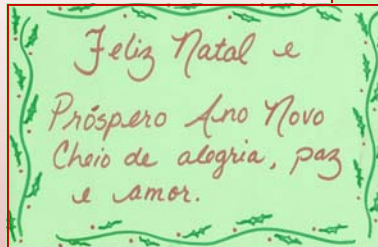 Feliz Natal e
Próspero Ano Novo
Cheio de alegria, paz
e amor.